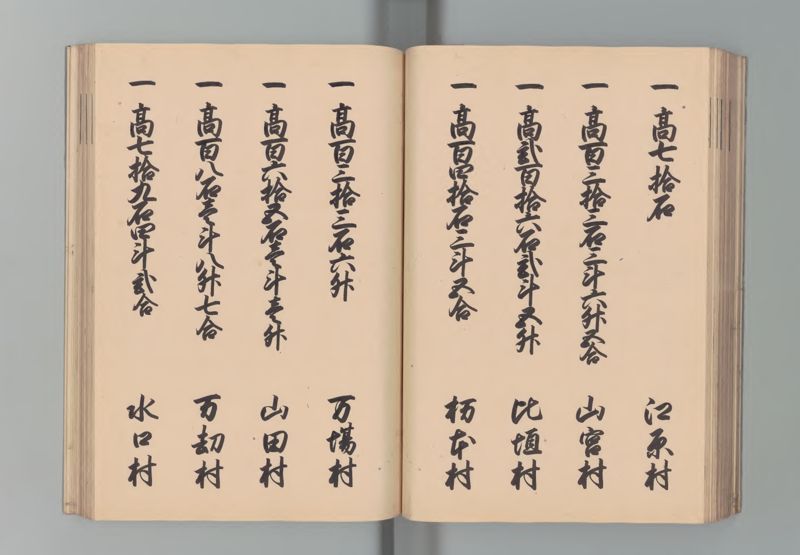 一 高七拾石 江原村
一 高百三拾三石三斗六升五合 山宮村
一 高弐百拾六石弐斗五升 比垣村
一 高百四拾石三斗五合 栃本村
一 高百三拾三石六升 万場村
一 高百六拾五石壱斗壱升 山田村
一 高百八石壱斗八升七合 万劫村
一 高七拾九石四斗弐合 水口村